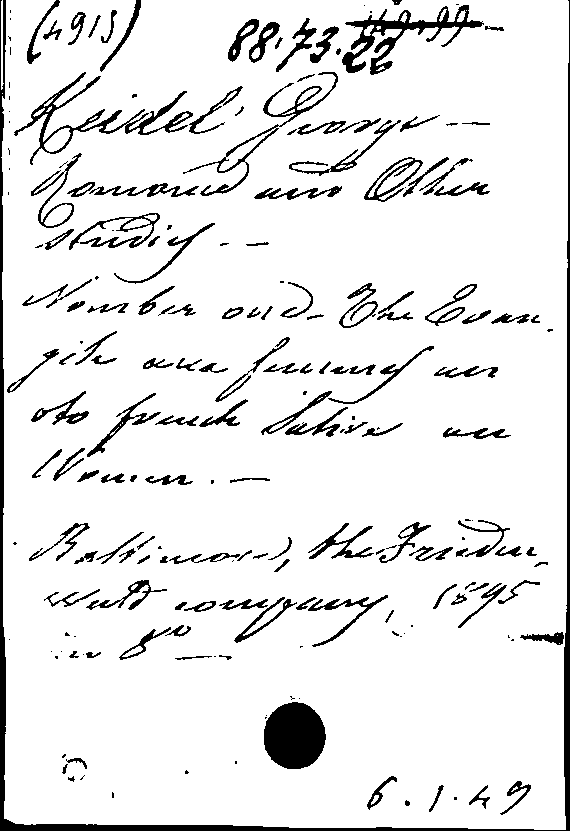 (4915)
88.73.22
Keidel, George —
Romance and Other
studies. —
Number one. The Evan-
gile aux femmes an
old french Satire on
Women. —
Baltimore, the Frieden-
wald company, 1895
in 8º —
6.1.49